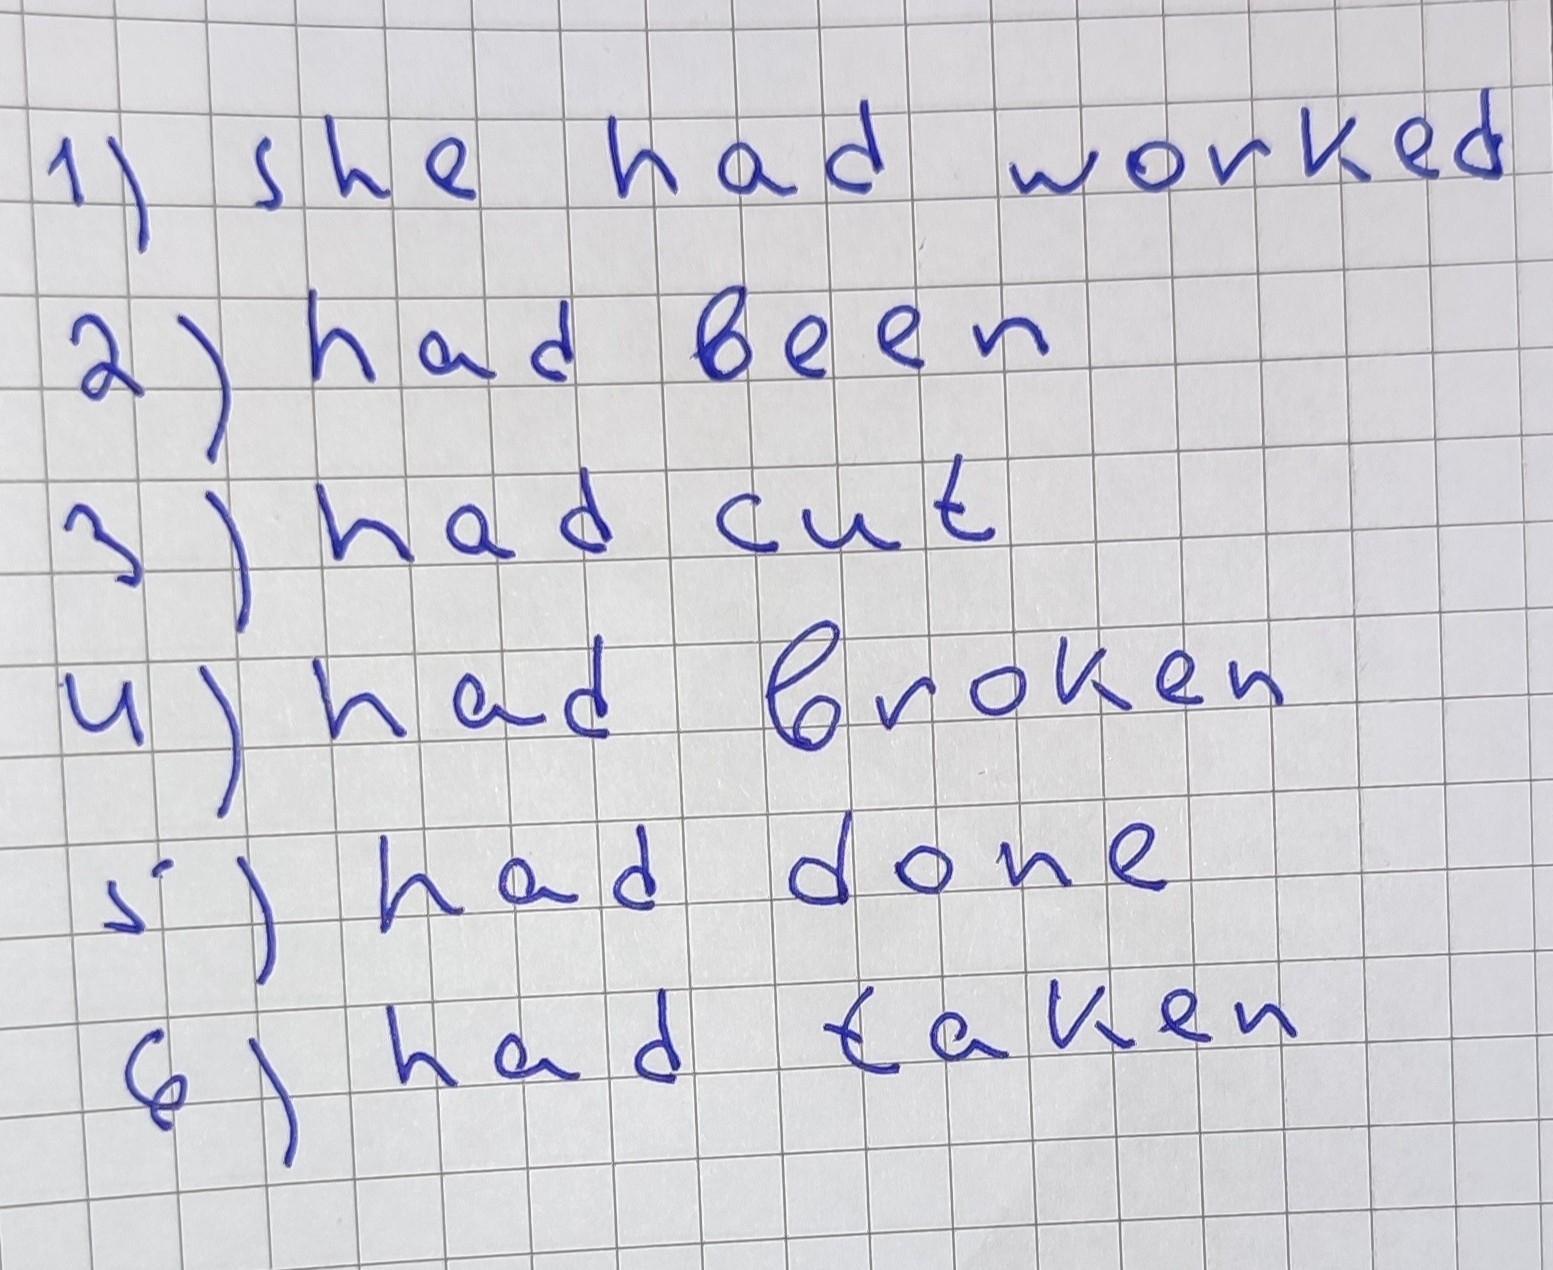 1) she had worked
2) had been
3) had cut
4) had broken
5) had done
6) had taken